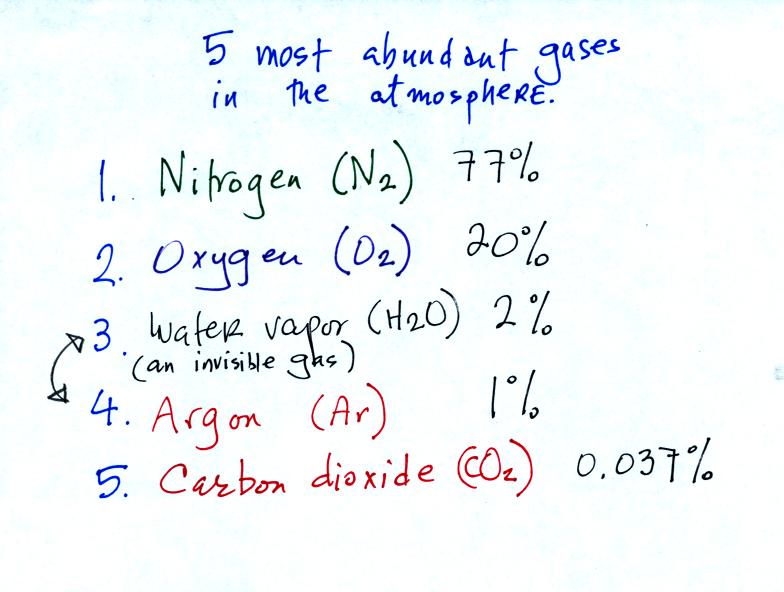 5 most abundant gases
in the atmosphere.
1. Nitrogen (N2) 77%
2. Oxygen (O2) 20%
3. Water vapor (H2O) 2%
(an invisible gas)
4. Argon (Ar) 1%
5. Carbon dioxide (CO2) 0.037%